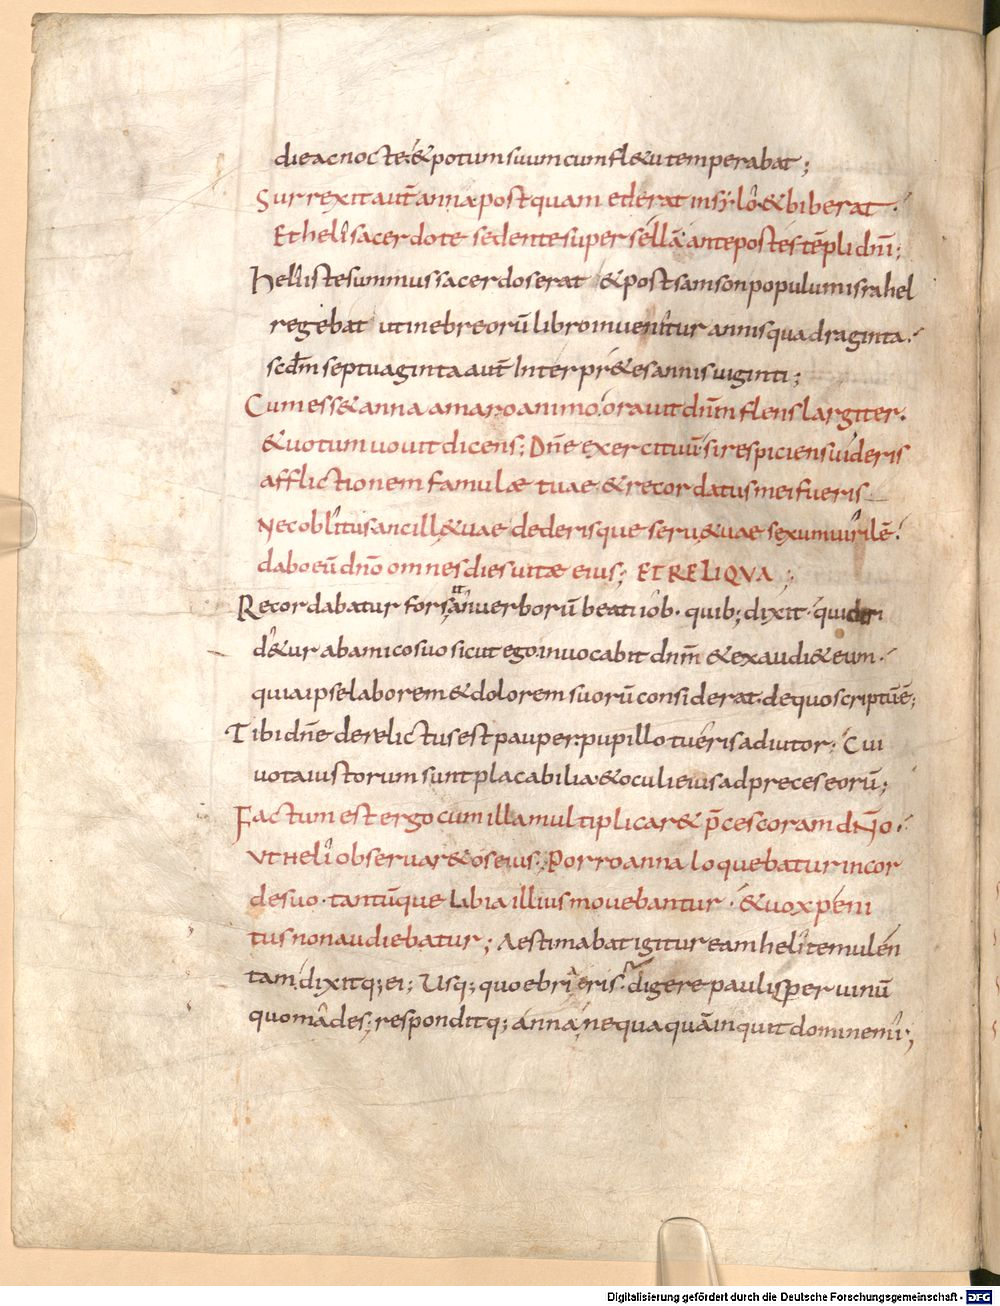 die ac nocte &potum suum cum fl&u temperabat;
Surrexit aut̄ anna postquam ederat in sylo &biberat.
Et heli sacerdote sedente super sellā ante postes tēpli dn̄i;
Heli iste summus sacerdos erat &post samson populum israhel
regebat ut in ebreorū libro inuenitur annis quadraginta.
scd̄m septuaginta aut̄ Interpr&es annis uiginti;
Cum ess& anna amaro animo. orauit dn̄m flens largiter.
&uotum uouit dicens; Dn̄e exercituū si respiciens uideris
afflictionem famulae tuae &recordatus mei fueris
Nec oblitus ancill& uae dederisque seru& uae sexum uirilē.
dabo eū dn̄o omnes dies uitae eius; ET RELIQVA;
Recordabatur forsan uerborū beati iob. quib; dixit. qui
d&ur ab amico suo sicut ego inuocabit dn̄m &exaudi& eum.
quia ipse laborem &dolorem suorū considerat. de quo scriptū ē;
Tibi dn̄e derelictus est pauper: pupillo tu eris adiutor. Cui
uota iustorum sunt placabilia &oculi eius ad preces eorū;
Factum est ergo cum illa multiplicar& p̄ces coram dn̄o.
VT Heli obseruar& os eius. Porro anna loquebatur in cor
de suo. tantūque labia illius mouebantur. &uox peni
tus non audiebatur; Aestimabat igitur eam heli temulen
tam dixitq; ei; Usq; quo ebria eris. digere paulisper uinū
quo mades; responditq; anna, nequaquā inquit domine mi;
Digitalisierung gefördert durch die Deutsche Forschungsgemeinschaft - DFG